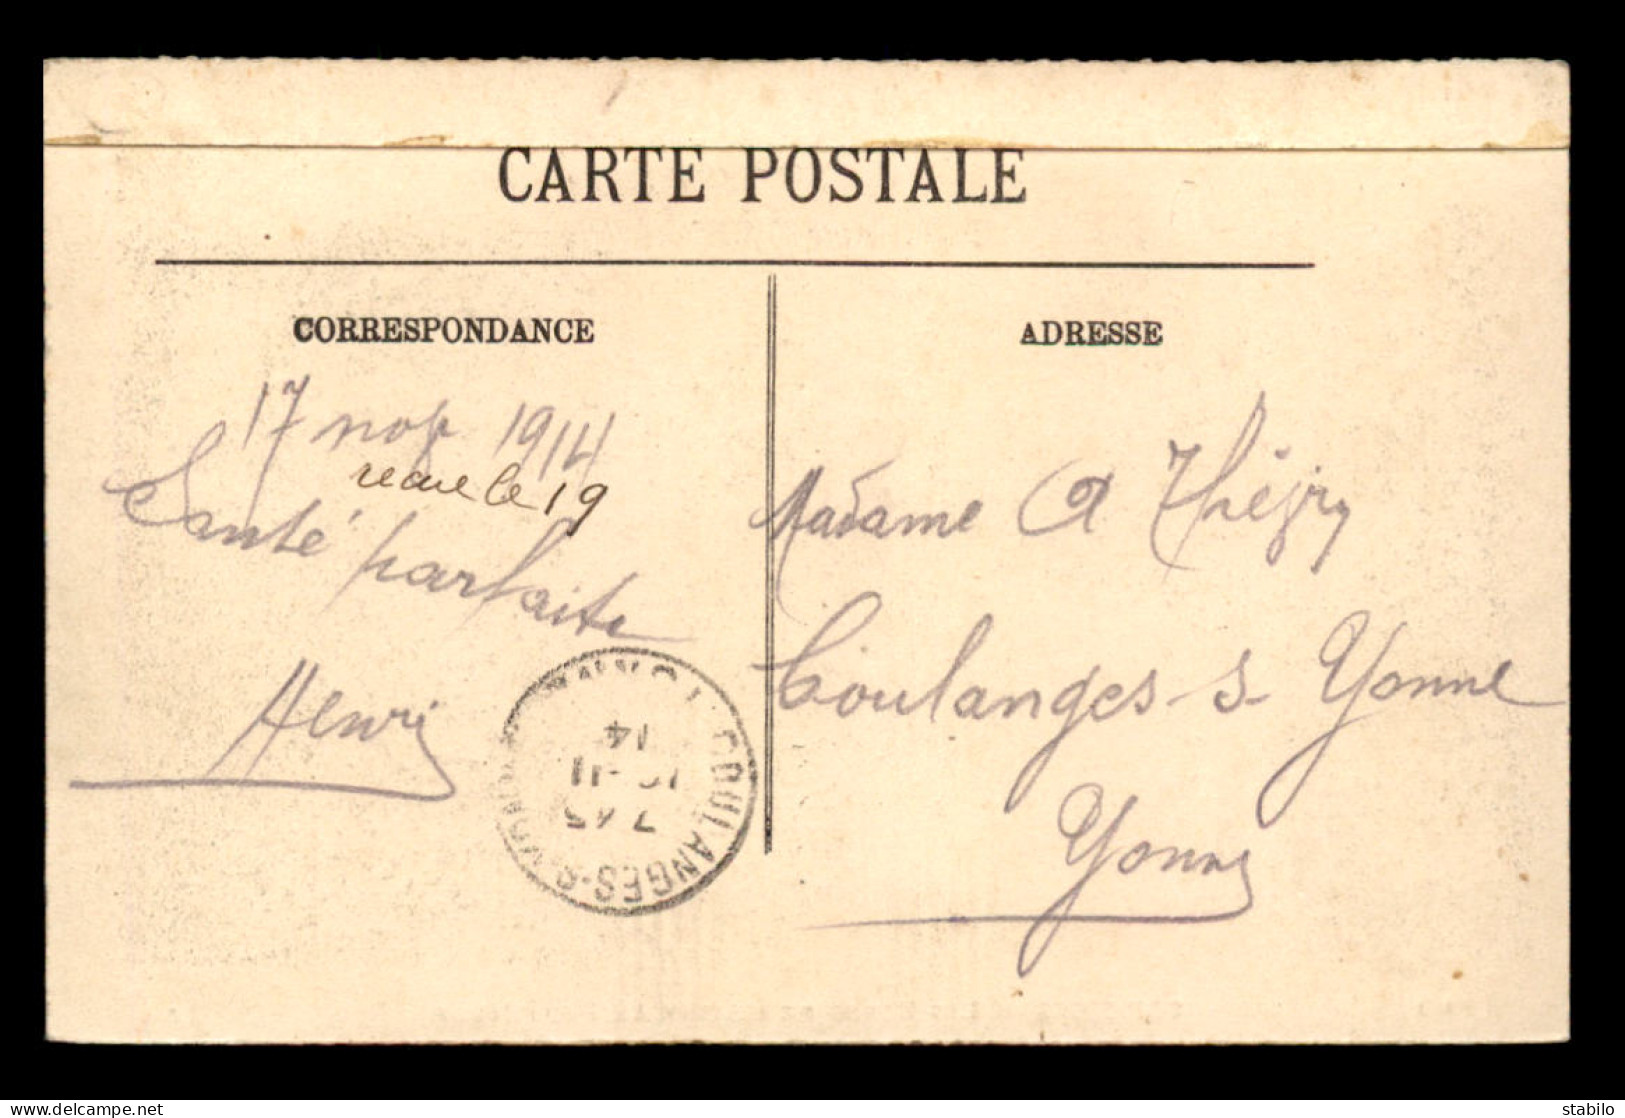 CARTE POSTALE
CORRESPONDANCE
17 nov 1914
recue le 19
Santé parfaite
Henri
ADRESSE
Madame A
Coulanges-s-Yonne
Yonne
COULANGES-S-YONNE
7 45
-11
14
delcampe.net
stabilo